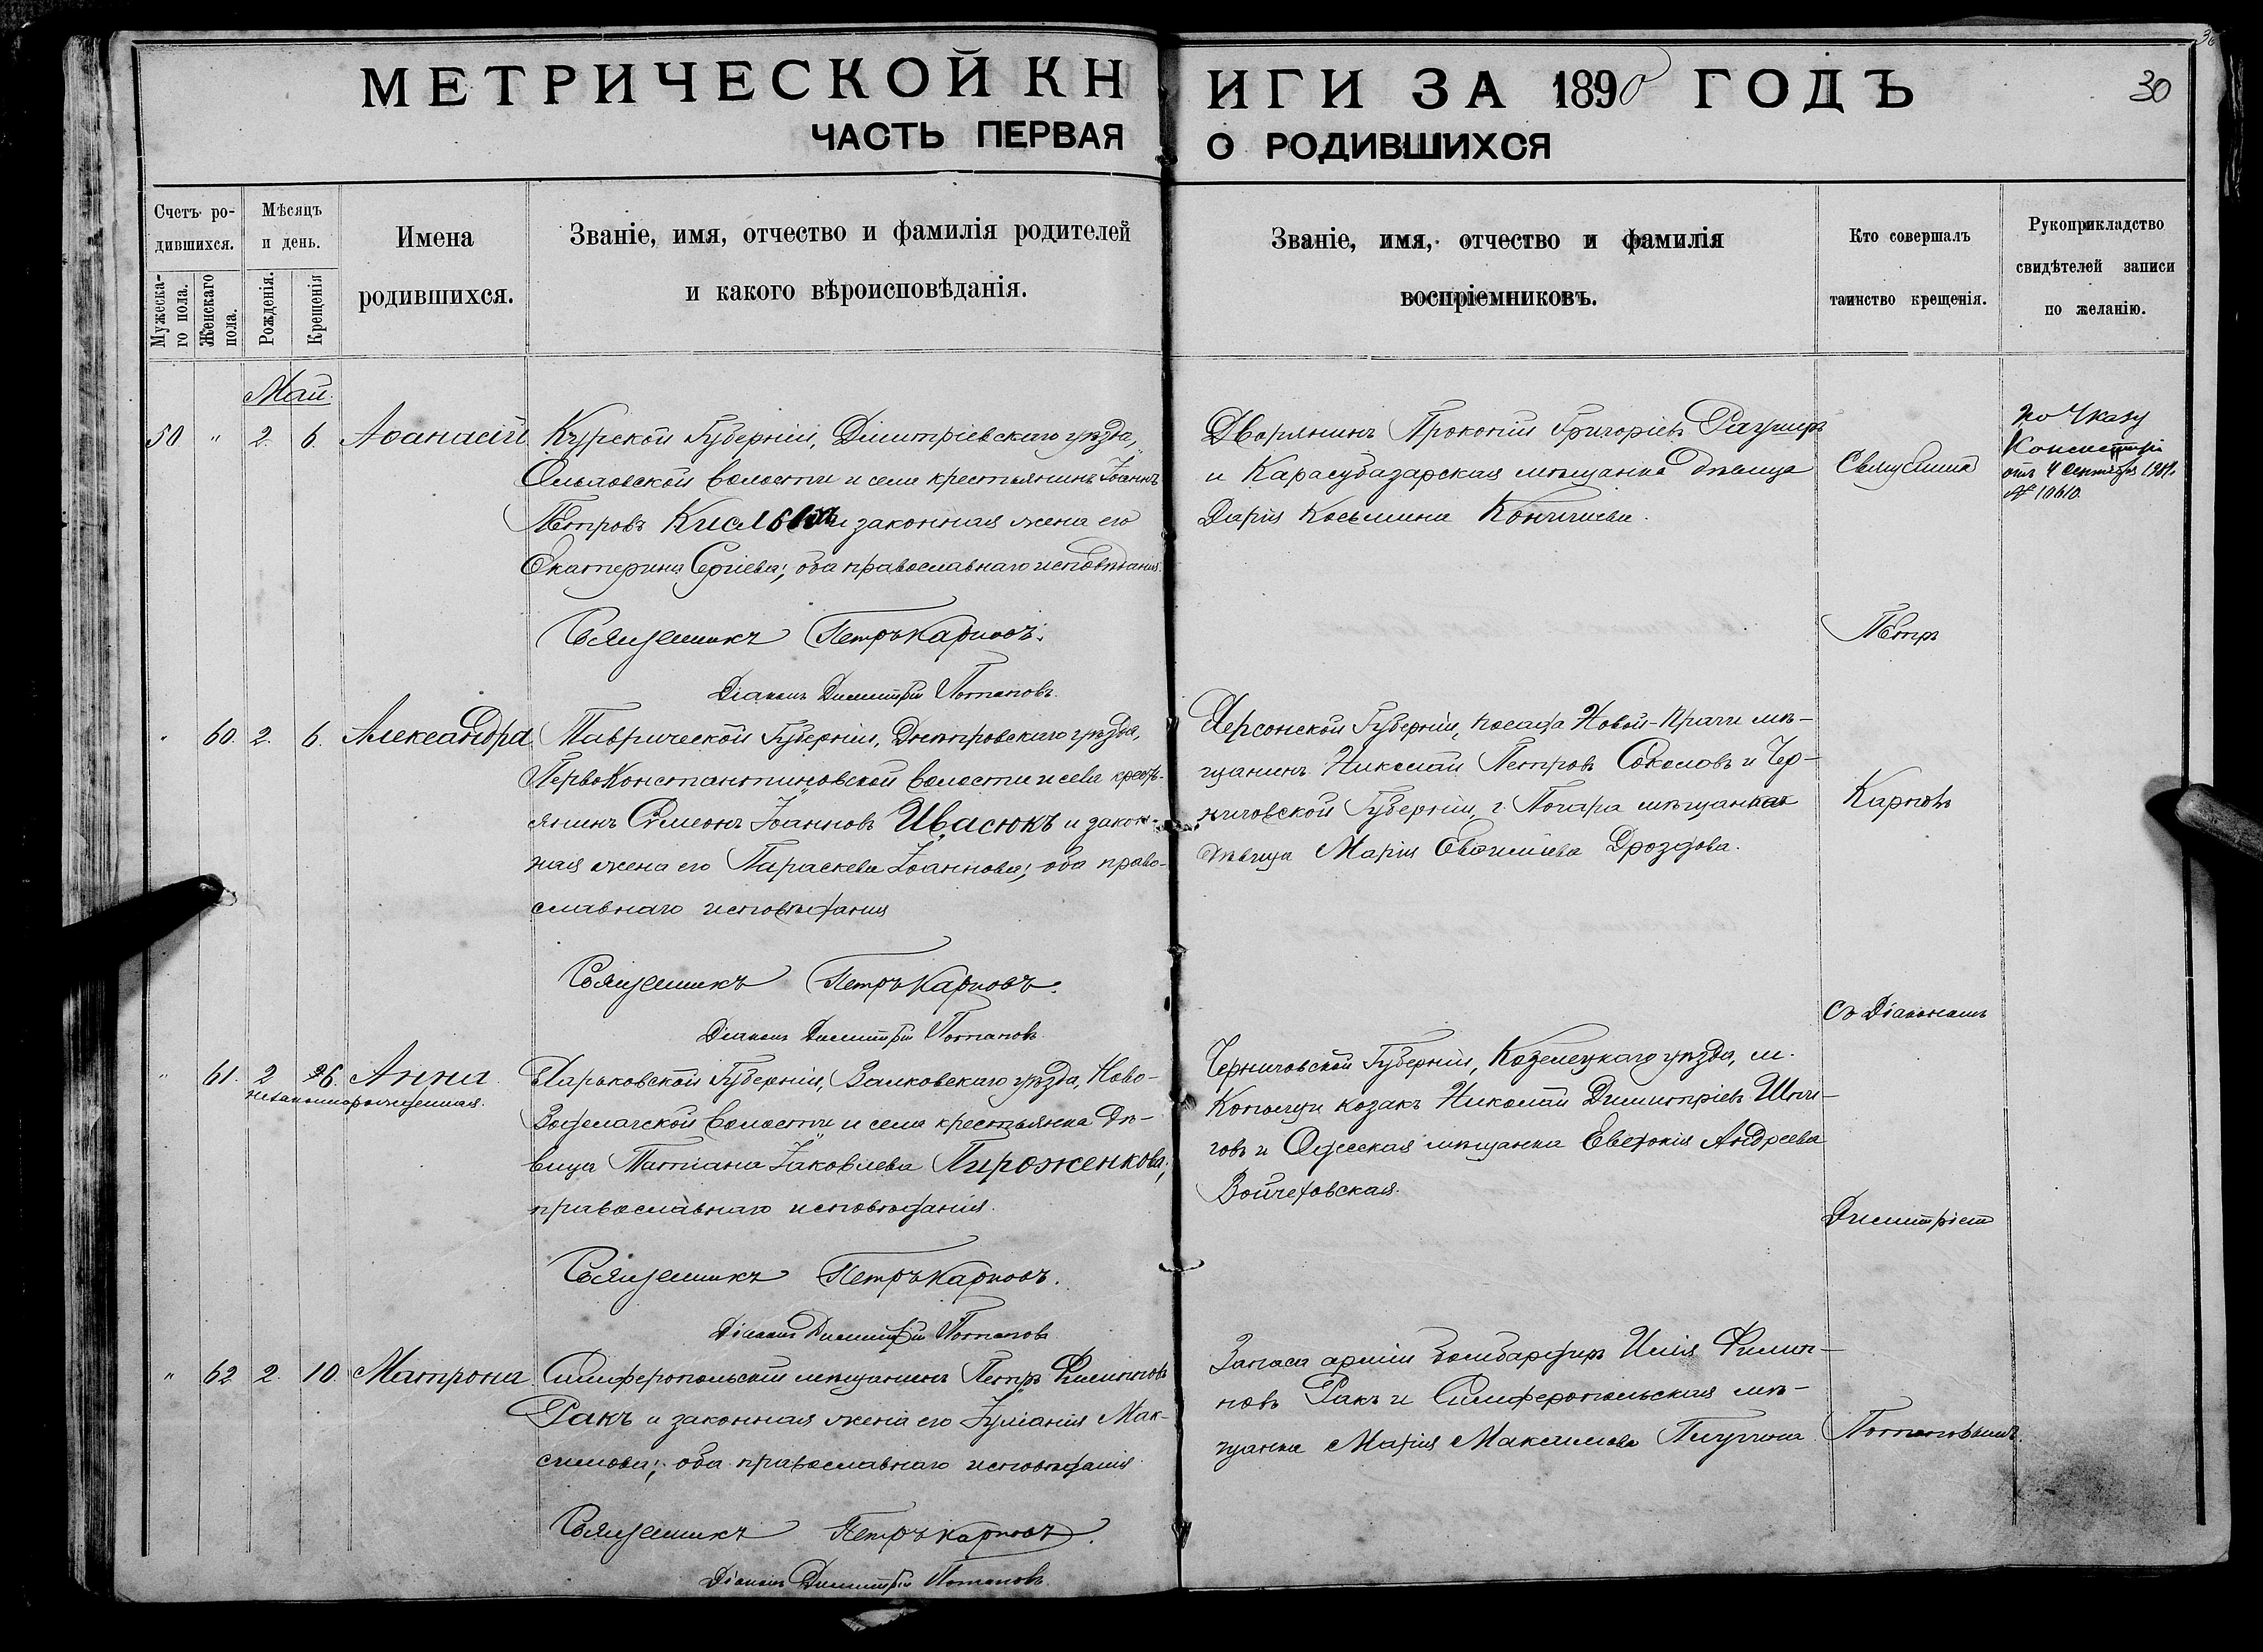 МЕТРИЧЕСКОЙ КНИГИ ЗА 1890 ГОДЪ
30
ЧАСТЬ ПЕРВАЯ О РОДИВШИХСЯ
Счетъ ро-
дившихся.
Мужеска-
го пола.
Женскаго
пола.
Мѣсяцъ
и день.
Рожденія.
Крещенія
Имена
родившихся.
Званіе, имя, отчество и фамилія родителей
и какого вѣроисповѣданія.
Званіе, имя, отчество и фамилія
воспріемниковъ.
Кто совершалъ
таинство крещенія.
Рукоприкладство
свидѣтелей записи
по желанію.
Май.
50 " 2. 6. Аѳанасій
Курской Губерніи, Димитріевскаго уѣзда,
волости и села крестьянинъ Іоаннъ
Петровъ и законная жена его
Екатерина Сергіева; оба православнаго исповѣданія.
Священникъ Петръ Карповъ.
Діаконъ Димитрій Потаповъ.
Дворянинъ Прокопій Григоріевъ
и Карасубазарская мѣщанка дѣвица
Дарія Косьмина
Священникъ
Петръ
Карповъ
съ Діакономъ
Димитріемъ
Потаповымъ.
по Указу
Консисторіи
отъ 4 Сентября
№ 10610.
" 60. 2. 6. Александра
Таврической Губерніи, Днѣпровскаго уѣзда,
ПервоКонстантиновской волости и села кресть-
янинъ Симеонъ Іоанновъ Ивасюкъ и закон-
ная жена его Параскева Іоаннова; оба право-
славнаго исповѣданія
Священникъ Петръ Карповъ.
Діаконъ Димитрій Потаповъ.
Херсонской Губерніи, посада Новой-Праги мѣ-
щанинъ Николай Петровъ Соколовъ и Чер-
ниговской Губерніи, г. Погара мѣщанка
дѣвица Марія Евѳиміева Дроздова.
" 61. 2 6. Анна
незаконнорожденная.
Харьковской Губерніи, Валковскаго уѣзда, Ново-
Водолагской волости и села крестьянка дѣ-
вица Татіана Іаковлева Пироженкова;
православнаго исповѣданія.
Священникъ Петръ Карповъ.
Діаконъ Димитрій Потаповъ
Черниговской Губерніи, Козелецкаго уѣзда, м.
козакъ Николай Димитріевъ
и Одесская мѣщанка Евдокія Андреева
Войчеховская.
" 62 2. 10. Матрона
Симферопольскій мѣщанинъ Петръ Филипповъ
Ракъ и законная жена его Іуліанія Мак-
симова; оба православнаго исповѣданія
Священникъ Петръ Карповъ.
Діаконъ Димитрій Потаповъ.
Запаса арміи бомбардиръ Илія Филип-
повъ Ракъ и Симферопольская мѣ-
щанка Марія Максимова